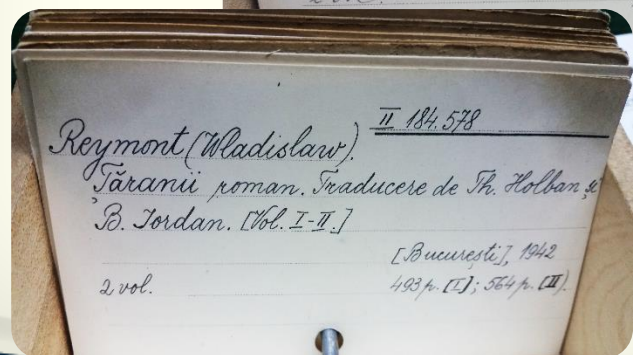 II 184.578
Reymont (Wladislaw).
Țăranii roman. Traducere de Th. Holban și
B. Iordan. [Vol. I-II.]
[București], 1942
2 vol. 493 p. [I]; 564 p. (II).